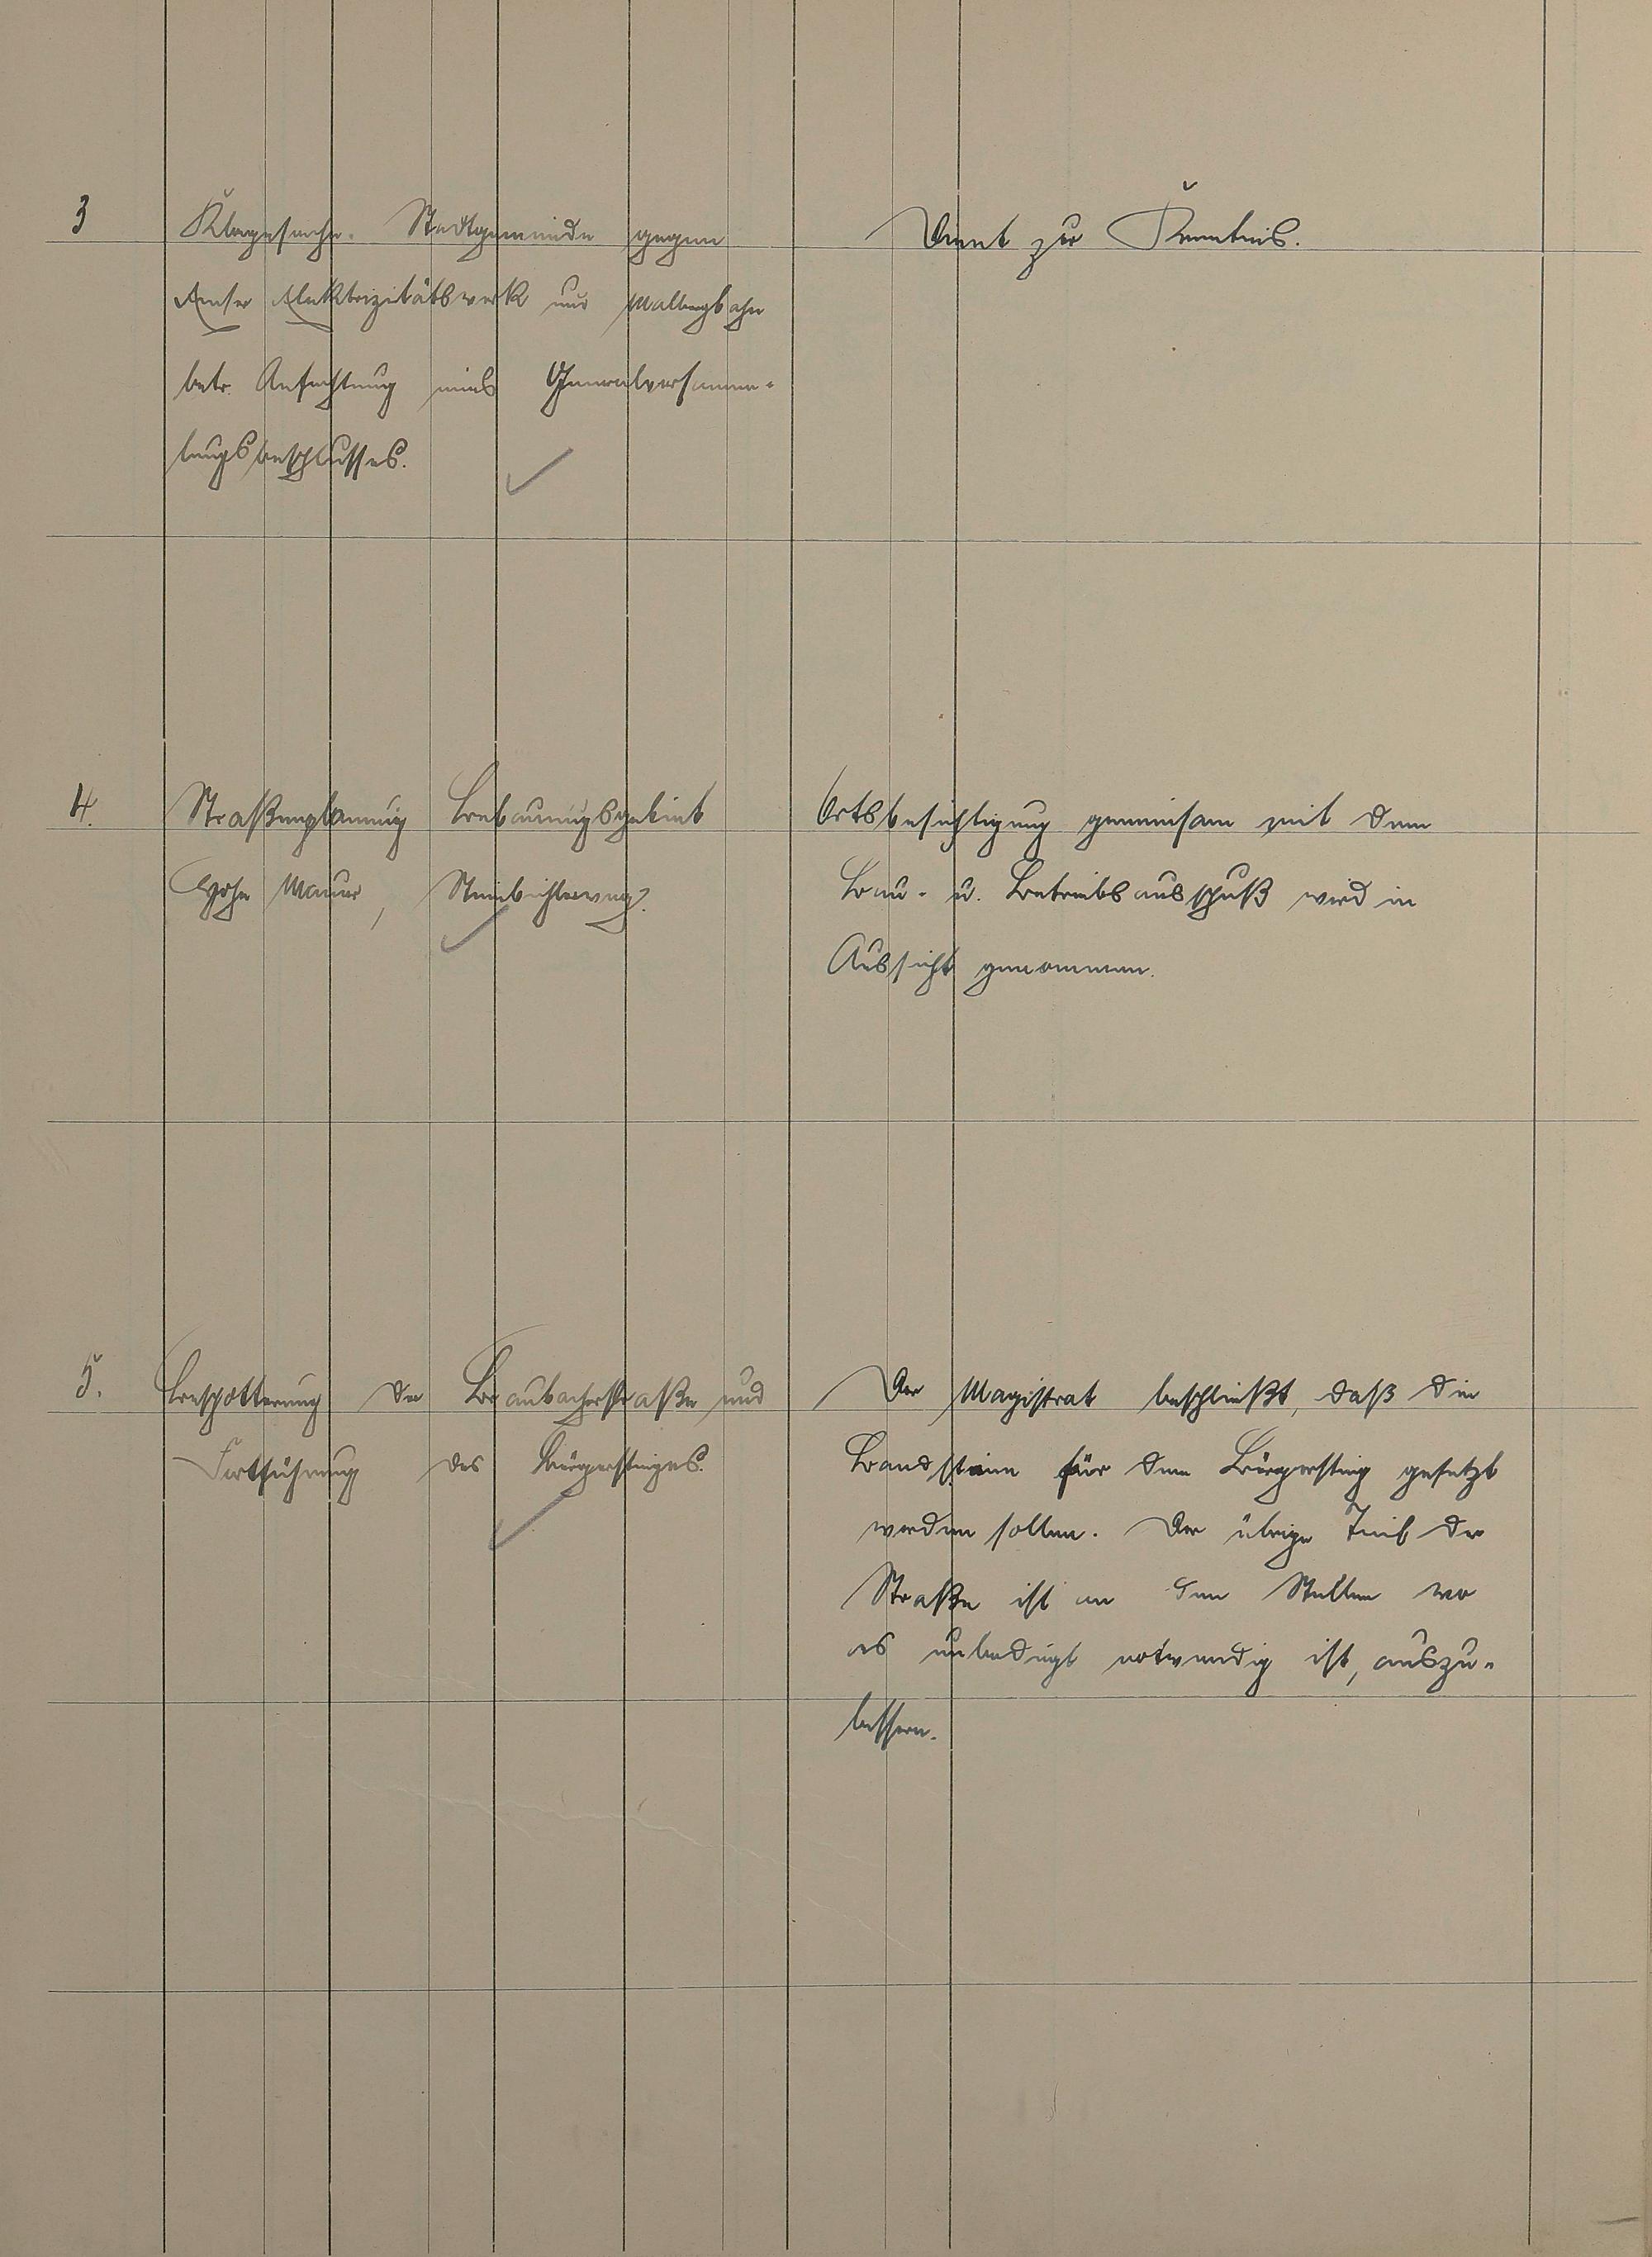 3 Klagesache. Stadtgemeinde gegen
Emser Elektrizitätswerk und Malbergbahn
betr. Anfechtung eines Generalversamm-
lungsbeschlusses.
Dient zur Kenntnis.
4. Straßenplanung Bebauungsgebiet
Hohe Mauer,
Ortsbesichtigung gemeinsam mit dem
Bau- u. Betriebsausschuß wird in
Aussicht genommen.
5. Beschotterung der Braubacherstraße und
Fortführung des Bürgersteiges.
Der Magistrat beschließt, daß die
Bandsteine für den Bürgersteig gesetzt
werden sollen. Der übrige Teil der
Straße ist an den Stellen wo
es unbedingt notwendig ist, auszu-
bessern.